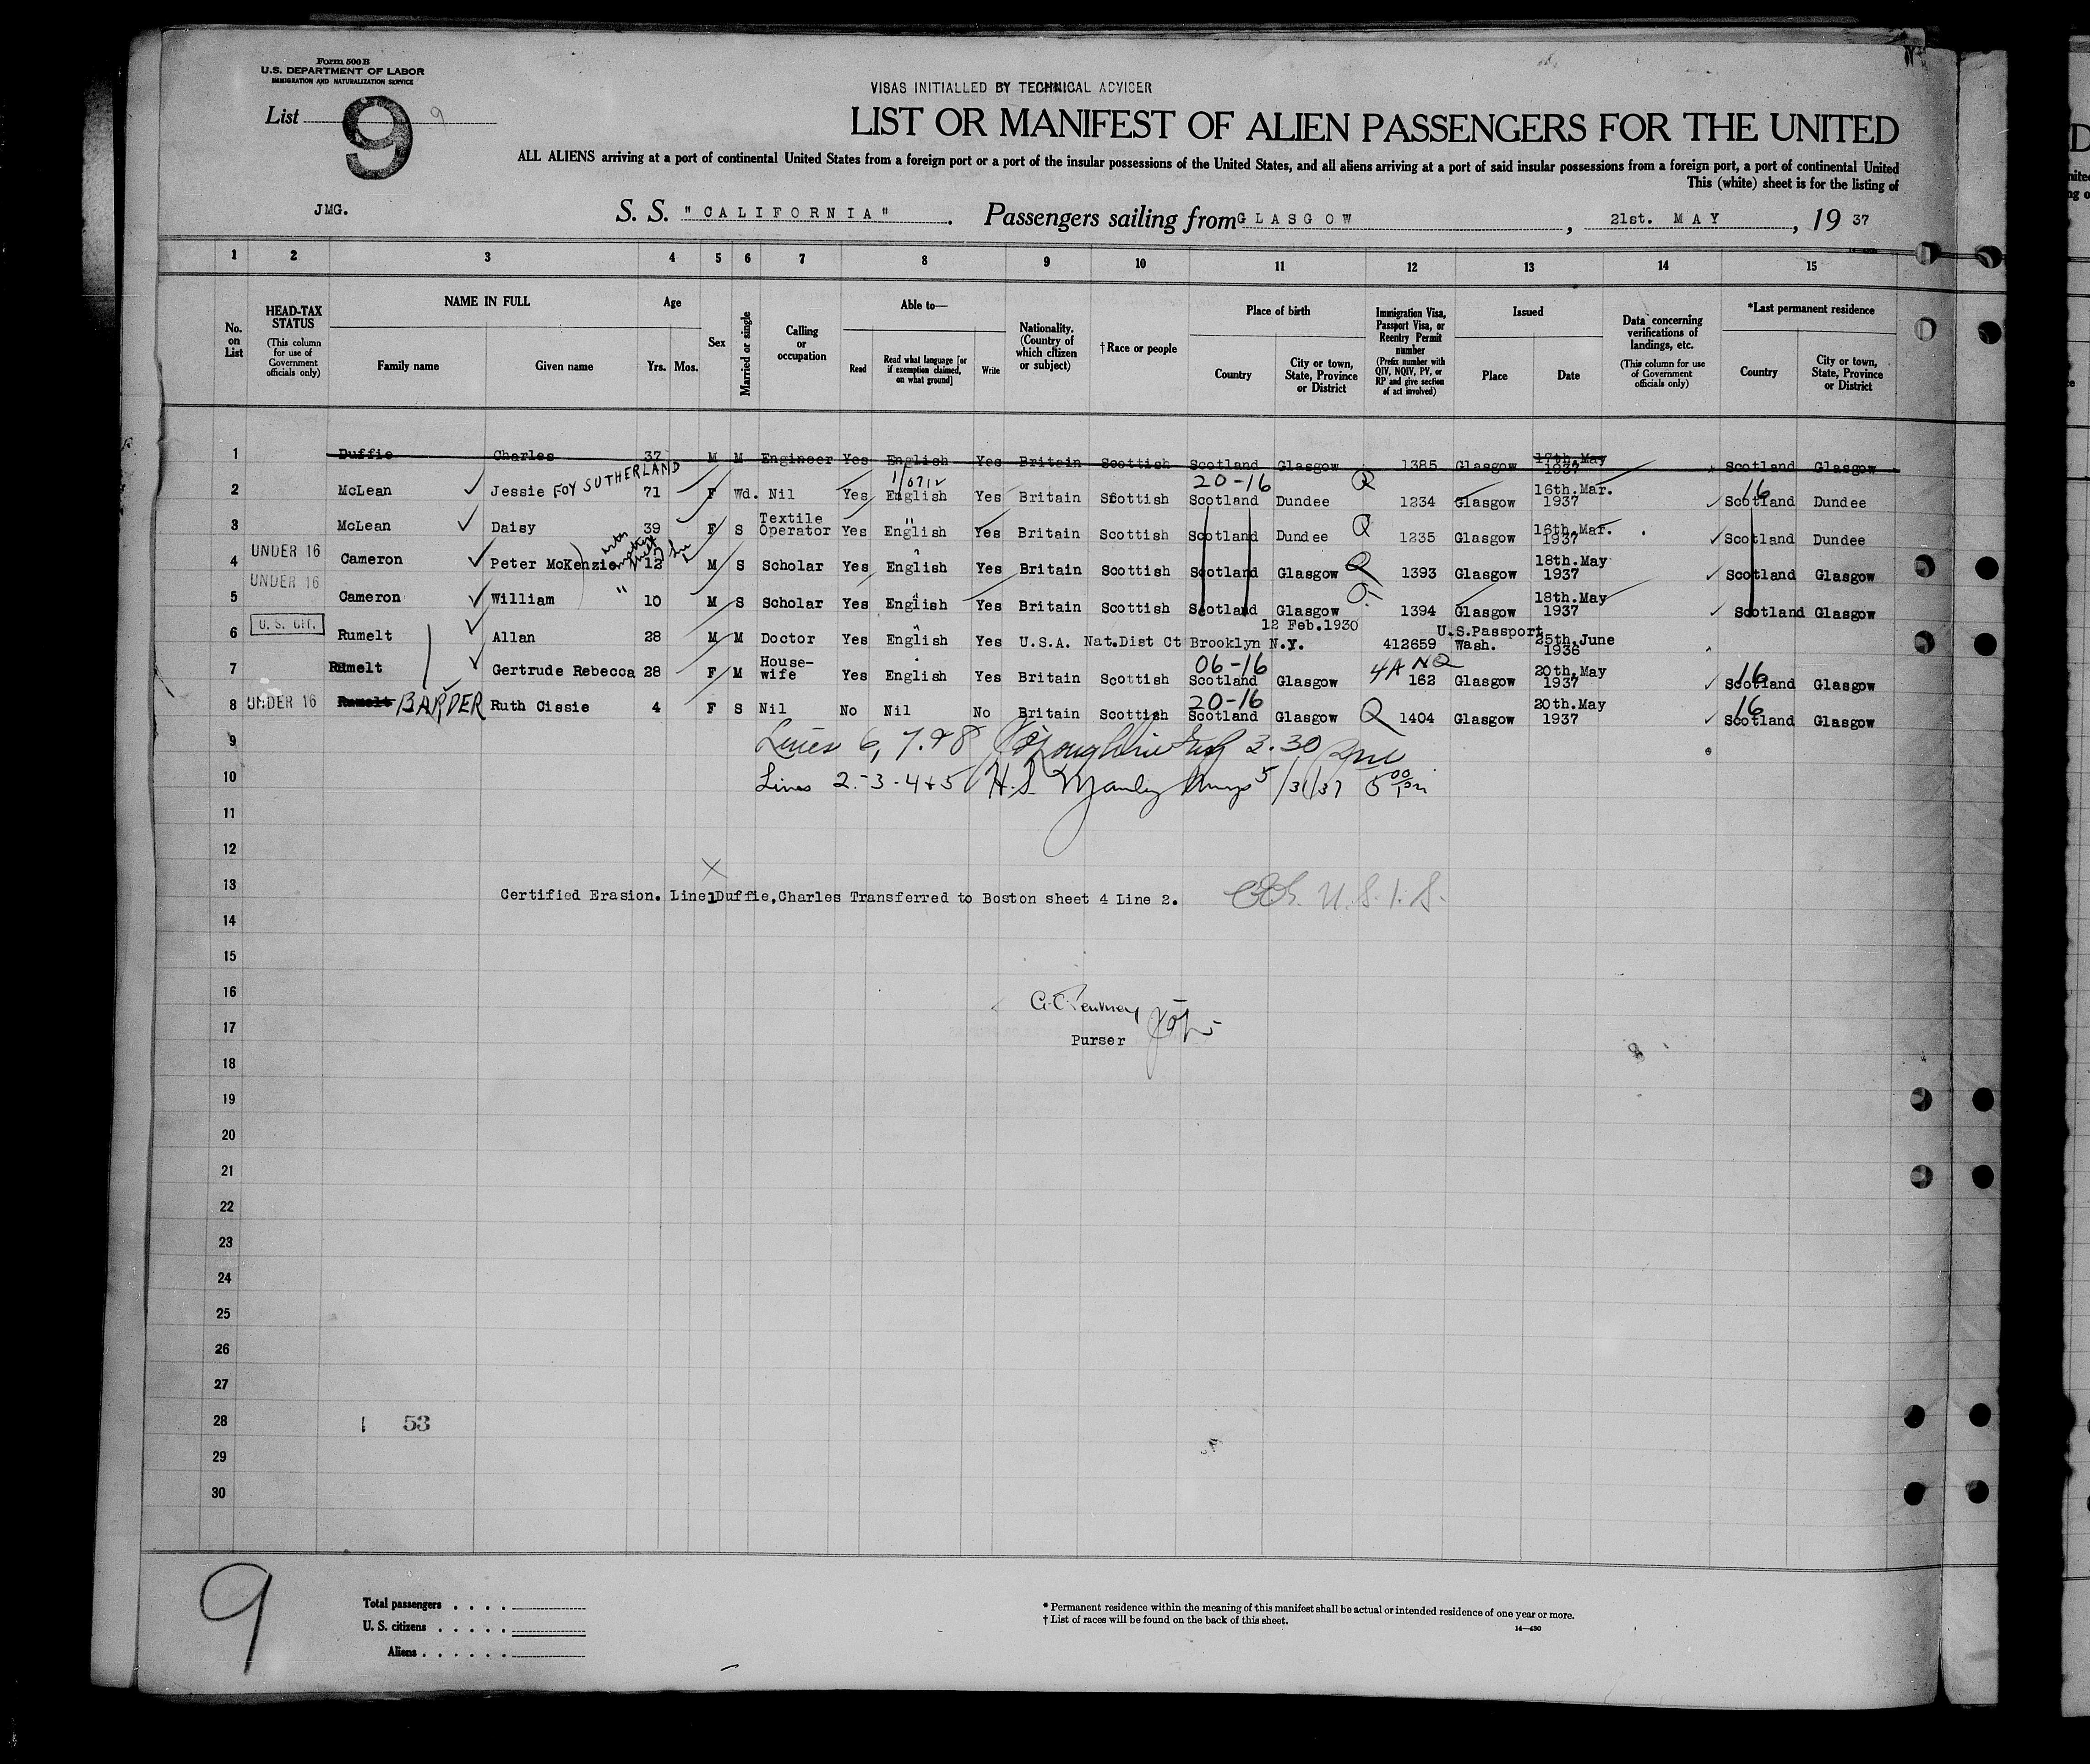 Form 500 B
U.S. DEPARTMENT OF LABOR
IMMIGRATION AND NATURALIZATION SERVICE
VISAS INITIALLED BY TECHNICAL ADVISER
List 9 9
LIST OR MANIFEST OF ALIEN PASSENGERS FOR THE UNITED
ALL ALIENS arriving at a port of continental United States from a foreign port or a port of the insular possessions of the United States, and all aliens arriving at a port of said insular possessions from a foreign port, a port of continental United
This (white) sheet is for the listing of
JMG. S. S. "CALIFORNIA". Passengers sailing from GLASGOW, 21st. MAY, 19 37
1 2 3 4 5 6 7 8 9 10 11 12 13 14 15
No. on List
HEAD-TAX STATUS (This column for use of Government officials only)
NAME IN FULL Family name Given name
Age Yrs. Mos.
Sex
Married or single
Calling or occupation
Able to— Read Read what language [or if exemption claimed, on what ground] Write
Nationality. (Country of which citizen or subject)
†Race or people
Place of birth Country City or town, State, Province or District
Immigration Visa, Passport Visa, or Reentry Permit number (Prefix number with QIV, NQIV, PV, or RP and give section of act involved)
Issued Place Date
Data concerning verifications of landings, etc. (This column for use of Government officials only)
*Last permanent residence Country City or town, State, Province or District
1 Duffie Charles 37 M M Engineer Yes English Yes Britain Scottish Scotland Glasgow 1385 Glasgow 17th.May 1937 Scotland Glasgow
20-16 16
2 McLean Jessie FOY SUTHERLAND 71 F Wd. Nil Yes English Yes Britain Scottish Scotland Dundee Q 1234 Glasgow 16th.Mar. 1937 Scotland Dundee
3 McLean Daisy 39 F S Textile Operator Yes English Yes Britain Scottish Scotland Dundee Q 1235 Glasgow 16th.Mar. 1937 Scotland Dundee
4 UNDER 16 Cameron Peter McKenzie 12 M S Scholar Yes English Yes Britain Scottish Scotland Glasgow Q 1393 Glasgow 18th.May 1937 Scotland Glasgow
5 UNDER 16 Cameron William " 10 M S Scholar Yes English Yes Britain Scottish Scotland Glasgow 1394 Glasgow 18th.May 1937 Scotland Glasgow
6 U. S. CIT. Rumelt Allan 28 M M Doctor Yes English Yes U.S.A. Nat.Dist Ct Brooklyn N.Y. 12 Feb.1930 412659 U.S.Passport Wash. 25th.June 1936
06-16 4A NQ 16
7 Rumelt Gertrude Rebecca 28 F M House-wife Yes English Yes Britain Scottish Scotland Glasgow 162 Glasgow 20th.May 1937 Scotland Glasgow
20-16 16
8 UNDER 16 Rumelt BARDER Ruth Cissie 4 F S Nil No Nil No Britain Scottish Scotland Glasgow Q 1404 Glasgow 20th.May 1937 Scotland Glasgow
9 Lines 6, 7 & 8 3.30
10 Lines 2-3-4+5 H.S. Manley 5/31/37 5 00
11
12
X
13 Certified Erasion. Line 1 Duffie, Charles Transferred to Boston sheet 4 Line 2. U.S.I.S.
14
15
16
17
Purser
18
19
20
21
22
23
24
25
26
27
28 53
29
30
9
Total passengers . . . .
U. S. citizens . . . . .
Aliens . . . . . .
* Permanent residence within the meaning of this manifest shall be actual or intended residence of one year or more.
† List of races will be found on the back of this sheet.
14—430